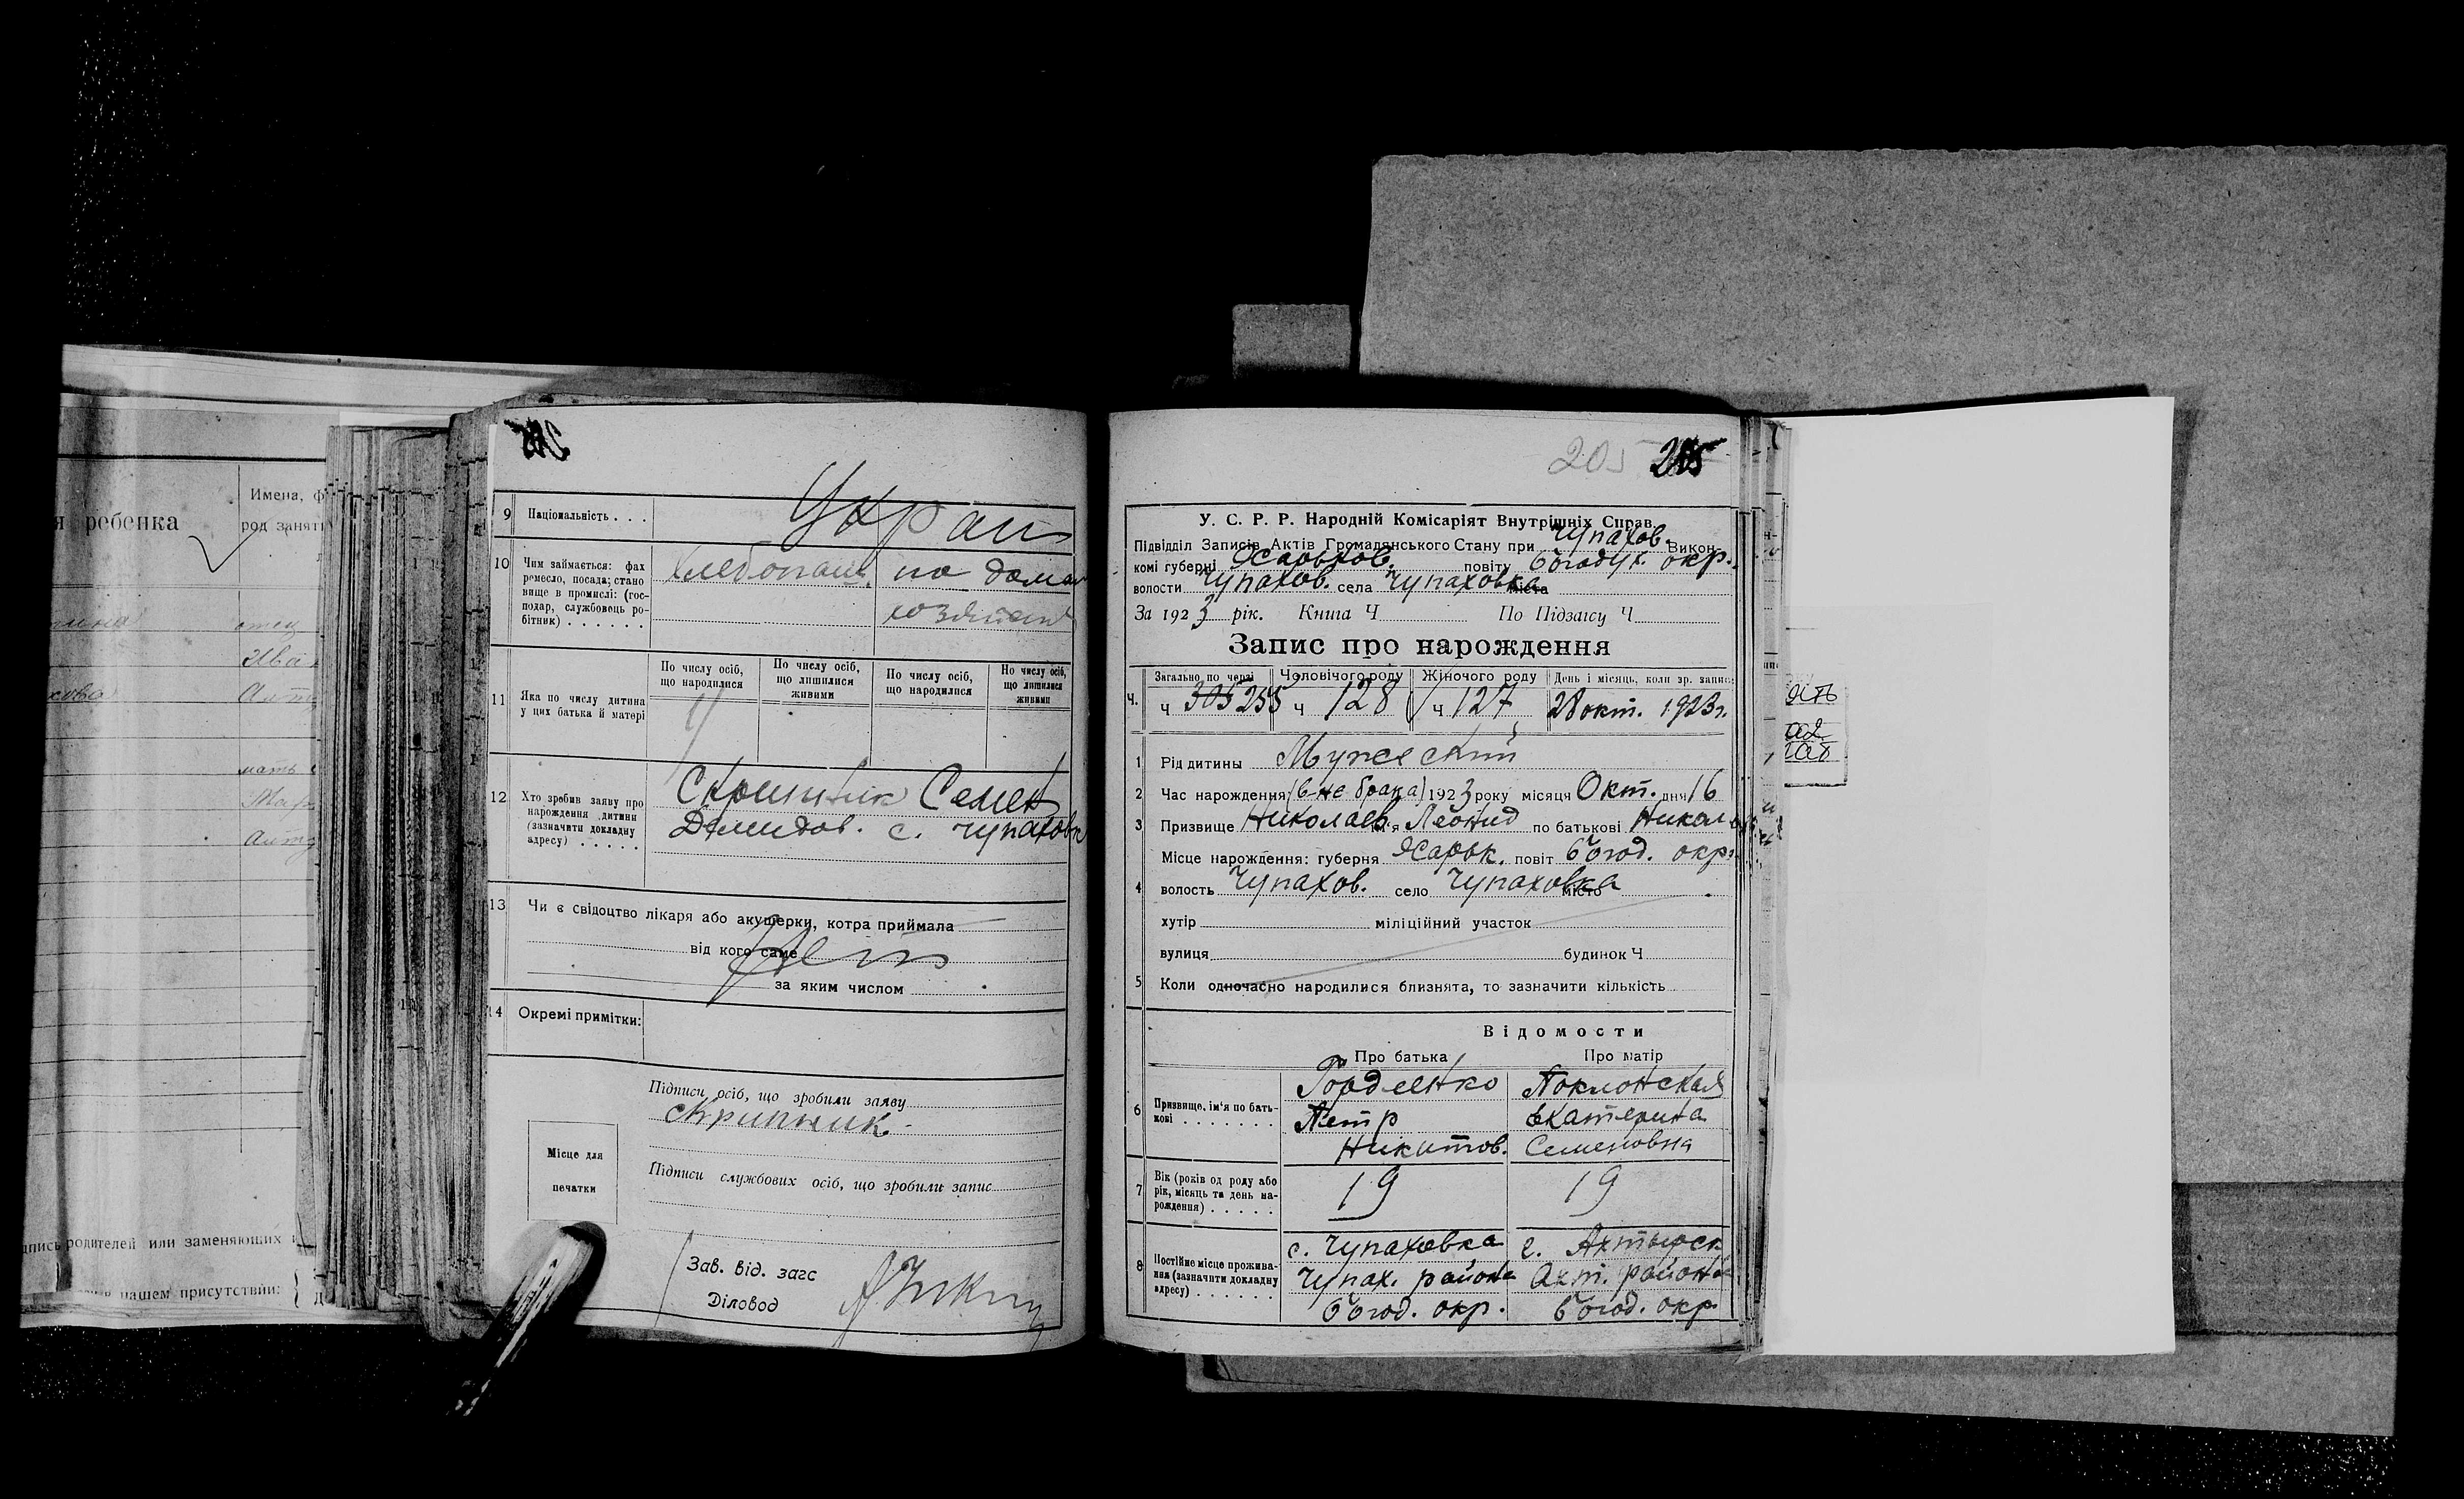 я ребенка
Имена, ф
род заняті
отец
мать
дпись родителей или заменяющих
в нашем присутствии:
9 Національність . . .
Украи
10 Чим займається: фах
ремесло, посада; стано
вище в промислі: (гос-
подар, службовець ро-
бітник) . . . . . .
хлебопаш. по домаш
хозяйств
11 Яка по числу дитина
у цих батька й матері
По числу осіб,
що народилися
По числу осіб,
що лишилися
живими
По числу осіб,
що народилися
Но числу осіб,
що лишилися
живими
12 Хто зробив заяву про
нарождення дитини
(зазначити докладну
адресу) . . . . .
Скрипник Семен
Демидов. с. Чупаховка
13 Чи є свідоцтво лікаря або акушерки, котра приймала
від кого саме
Нет
за яким числом
14 Окремі примітки:
Підписи осіб, що зробили заяву
Скрипник
Місце для
печатки
Підписи службових осіб, що зробили запис
Зав. від. загс
Діловод
205 205
У. С. Р. Р. Народній Комісаріят Внутрішніх Справ.
Підвідділ Записів Актів Громадянського Стану при Чупахов. Викон-
комі губерні Харьков. повіту Богодух. окр.
волости Чупахов. села Чупаховка міста
За 1923 рік. Книга Ч По Підзагсу Ч
Запис про нарождення
Загально по черзі Чоловічого роду Жіночого роду День і місяць, коли зр. запис
Ч. ч 305 255 ч 128 ч 127 28 окт. 1923 г.
1 Рід дитини Мужеский
2 Час нарождення (вне брака) 1923 року місяця Окт. дня 16
3 Призвище Николаев ім'я Леонид по батькові Никол
Місце нарождення: губерня Харьк. повіт Богод. окр.
4 волость Чупахов. село Чупаховка місто
хутір міліційний участок
вулиця будинок Ч
5 Коли одночасно народилися близнята, то зазначити кількість
Відомости
Про батька Про матір
6 Призвище, ім'я по бать-
кові . . . . . . .
Гордиенко Поклонская
Петр Екатерина
Никитов. Семеновна
7 Вік (років од роду або
рік, місяць та день на-
рождення) . . . . .
19 19
8 Постійне місце прожива-
ння (зазначити докладну
адресу) . . . . . .
с. Чупаховка г. Ахтырск
Чупах. района Ахт. района
Богод. окр. Богод. окр.